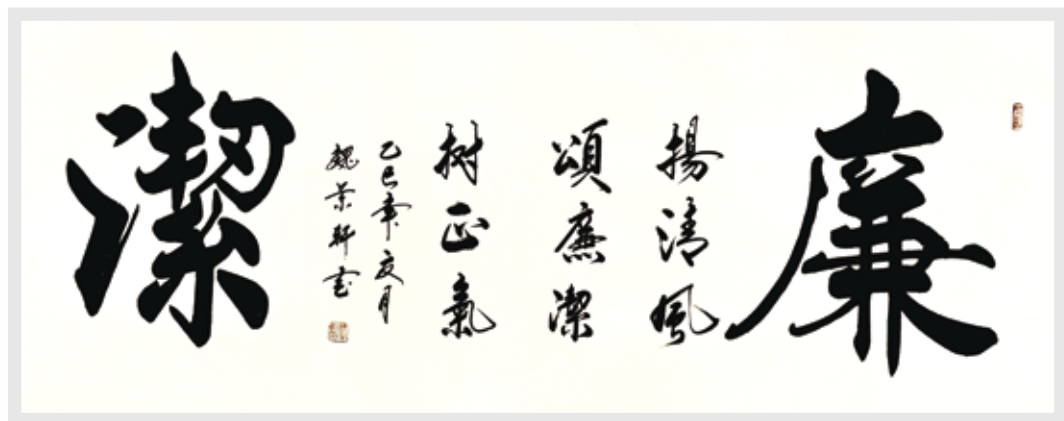 廉
揚清風
頌廉潔
树正氣
乙巳年夏月
魏軒书
潔